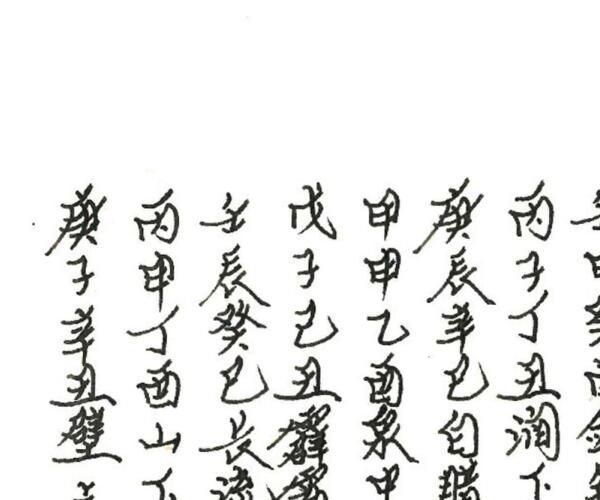 丙子丁丑润下
庚辰辛巳白臘
甲申乙酉泉中
戊子己丑霹
壬辰癸巳長流
丙申丁酉山下
庚子辛丑壁土